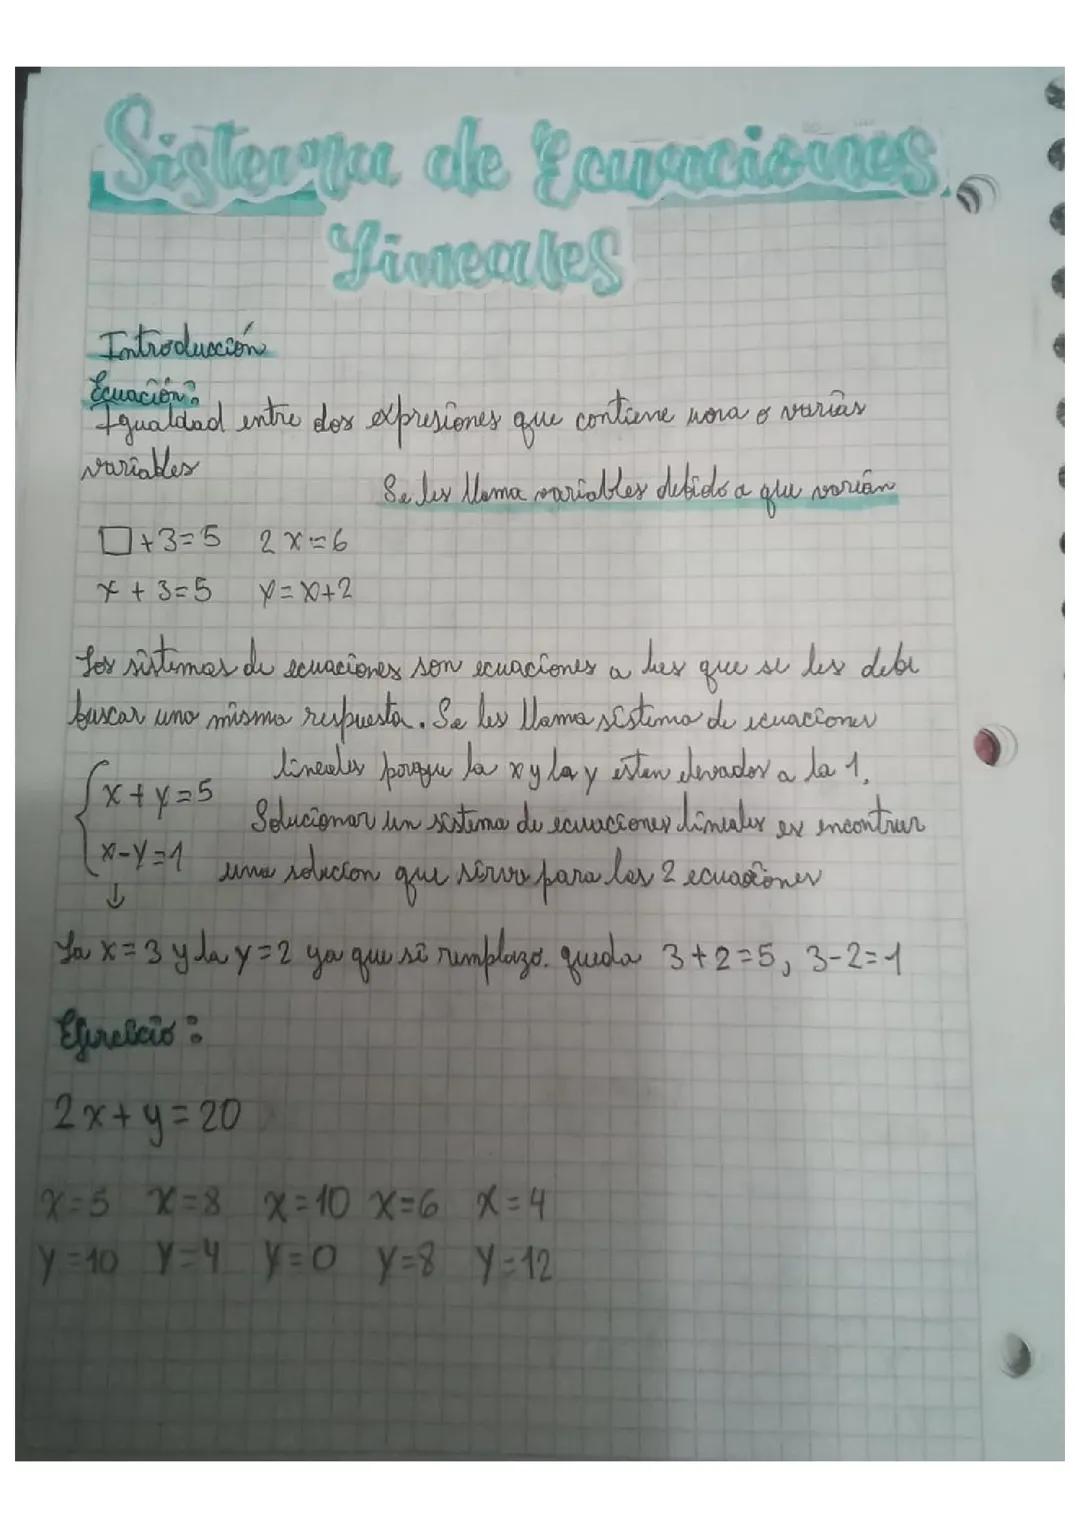 Sistema de Ecuaciones
Lineales
Introducción
Ecuación:
Igualdad entre dos expresiones que contiene una o varias
variables
Se les llama variables debido a que varían
□+3=5 2x=6
x+3=5 y=x+2
Los sistemas de ecuaciones son ecuaciones a las que se les debe
buscar una misma respuesta. Se les llama sistema de ecuaciones
lineales porque la x y la y esten elevados a la 1.
x+y=5
Solucionar un sistema de ecuaciones lineales es encontrar
x-y=1 una solucion que sirva para las 2 ecuaciones
↓
La x=3 y la y=2 ya que si remplazo. queda 3+2=5, 3-2=1
Ejercicio:
2x+y=20
x=5 x=8 x=10 x=6 x=4
y=10 y=4 y=0 y=8 y=12